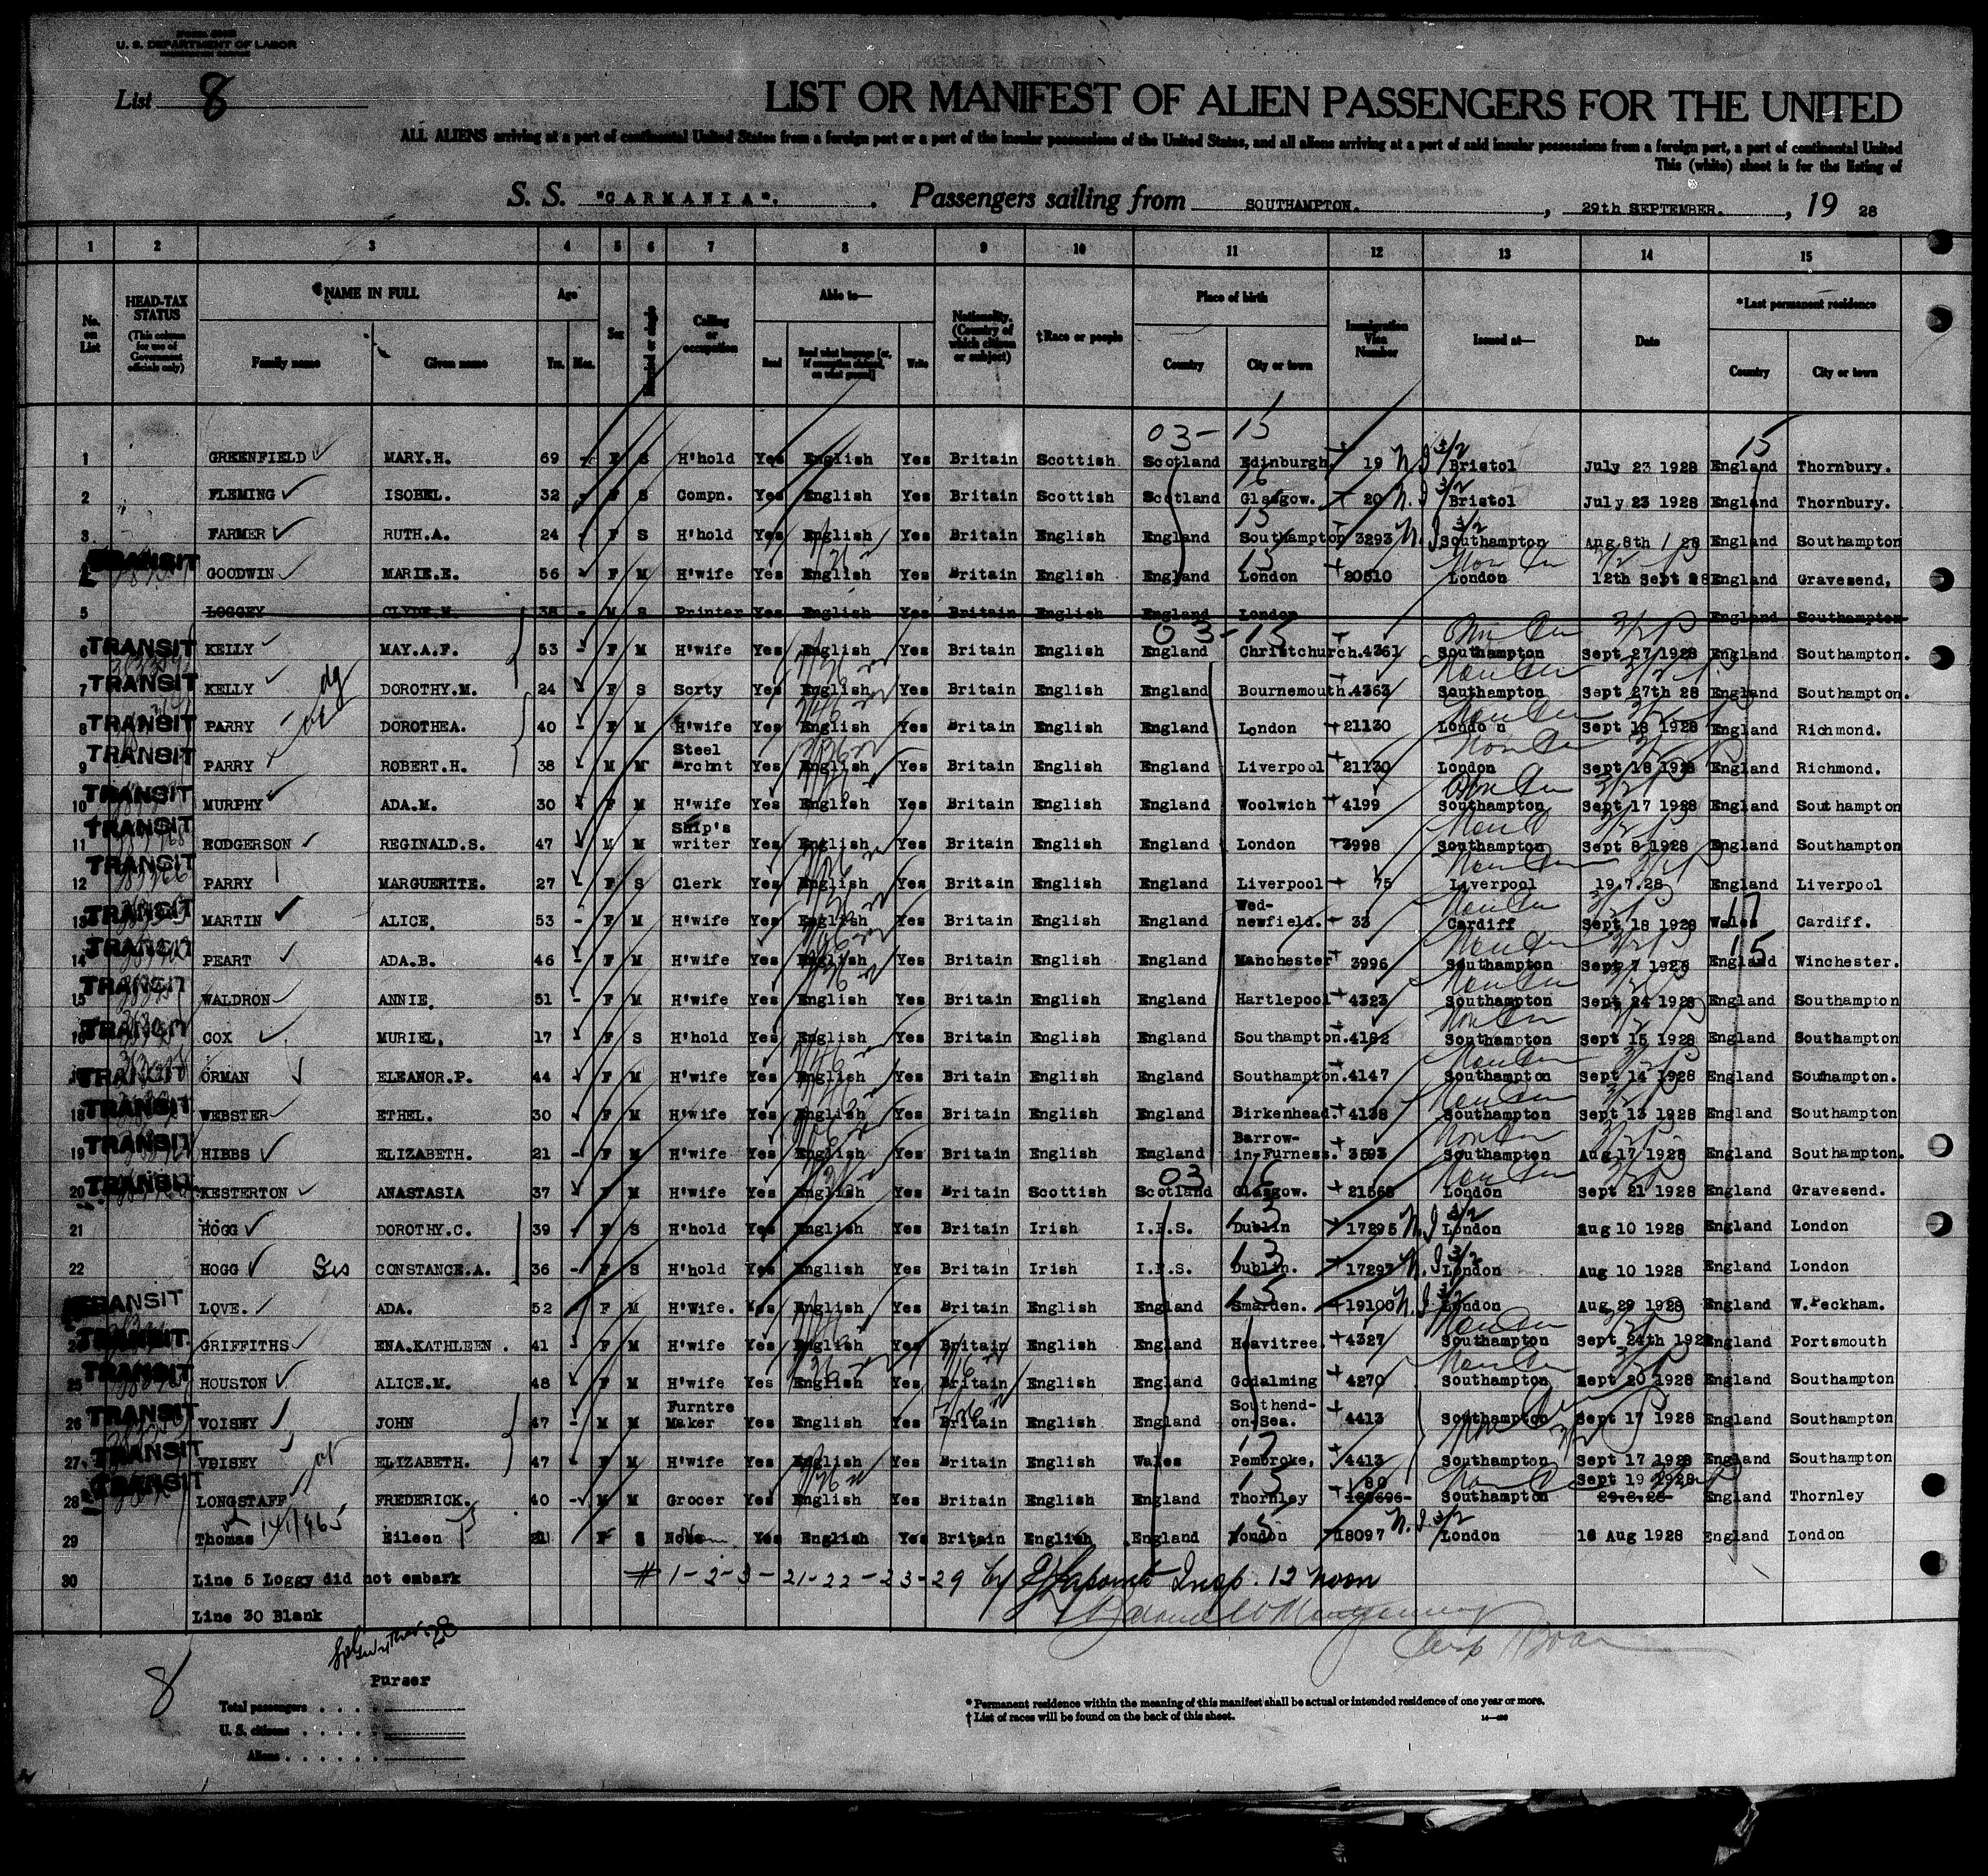 U. S. DEPARTMENT OF LABOR
List 8
LIST OR MANIFEST OF ALIEN PASSENGERS FOR THE UNITED
ALL ALIENS arriving at a port of continental United States from a foreign port or a port of the insular possessions of the United States, and all aliens arriving at a port of said insular possessions from a foreign port, a port of continental United
This (white) sheet is for the listing of
S. S. "CARMANIA". Passengers sailing from SOUTHAMPTON. , 29th SEPTEMBER. , 19 28
1 2 3 4 5 6 7 8 9 10 11 12 13 14 15
No. on List
HEAD-TAX STATUS (This column for use of Government officials only)
NAME IN FULL Family name Given name
Age Yrs. Mos.
Sex
Married or single
Calling or occupation
Able to— Read Read what language [or, if exemption claimed, on what ground] Write
Nationality. (Country of which citizen or subject)
†Race or people
Place of birth Country City or town
Immigration Visa Number
Issued at—
Date
*Last permanent residence Country City or town
03- 15 15
1 GREENFIELD MARY.H. 69 - F S H'hold Yes English Yes Britain Scottish Scotland Edinburgh 19 Bristol July 23 1928 England Thornbury.
2 FLEMING ISOBEL. 32 - F S Compn. Yes English Yes Britain Scottish Scotland Glasgow. 20 Bristol July 23 1928 England Thornbury.
3 FARMER RUTH.A. 24 - F S H'hold Yes English Yes Britain English England Southampton 3293 Southampton Aug 8th 28 England Southampton
TRANSIT GOODWIN MARIE.E. 56 - F M H'wife Yes English Yes Britain English England London 20510 London 12th Sept 28 England Gravesend,
5 LOGGEY CLYDE.M. 38 - M S Printer Yes English Yes Britain English England London England Southampton
03-15
6 TRANSIT KELLY MAY.A.F. 53 - F M H'wife Yes English Yes Britain English England Christchurch. 4361 Southampton Sept 27 1928 England Southampton.
7 TRANSIT KELLY DOROTHY.M. 24 F S Scrty Yes English Yes Britain English England Bournemouth. 4363 Southampton Sept 27th 28 England Southampton.
8 TRANSIT PARRY DOROTHEA. 40 - F M H'wife Yes English Yes Britain English England London 21130 London Sept 18 1928 England Richmond.
9 TRANSIT PARRY ROBERT.H. 38 - M M Steel Mrchnt Yes English Yes Britain English England Liverpool 21130 London Sept 18 1928 England Richmond.
10 TRANSIT MURPHY ADA.M. 30 F M H'wife Yes English Yes Britain English England Woolwich 4199 Southampton Sept 17 1928 England Southampton
11 TRANSIT RODGERSON REGINALD.S. 47 M M Ship's writer Yes English Yes Britain English England London 3998 Southampton Sept 8 1928 England Southampton
12 TRANSIT PARRY MARGUERITE. 27 - F S Clerk Yes English Yes Britain English England Liverpool 75 Liverpool 19.7.28 England Liverpool
13 TRANSIT MARTIN ALICE. 53 - F M H'wife Yes English Yes Britain English England Wed- nesfield. 33 Cardiff Sept 18 1928 Wales Cardiff.
14 TRANSIT PEART ADA.B. 46 - F M H'wife Yes English Yes Britain English England Manchester 3996 Southampton Sept 7 1928 England Winchester.
15 TRANSIT WALDRON ANNIE. 51 - F M H'wife Yes English Yes Britain English England Hartlepool 4323 Southampton Sept 24 1928 England Southampton
16 TRANSIT COX MURIEL. 17 F S H'hold Yes English Yes Britain English England Southampton. 4182 Southampton Sept 15 1928 England Southampton
TRANSIT ORMAN ELEANOR.P. 44 F M H'wife Yes English Yes Britain English England Southampton. 4147 Southampton Sept 14 1928 England Southampton.
18 TRANSIT WEBSTER ETHEL. 30 F M H'wife Yes English Yes Britain English England Birkenhead. 4138 Southampton Sept 13 1928 England Southampton
19 TRANSIT HIBBS ELIZABETH. 21 - F M H'wife Yes English Yes Britain English England Barrow- in-Furness. 3593 Southampton Aug 17 1928 England Southampton.
20 TRANSIT KESTERTON ANASTASIA 37 F M H'wife Yes English Yes Britain Scottish Scotland Glasgow. 21568 London Sept 21 1928 England Gravesend.
21 HOGG DOROTHY.C. 39 F S H'hold Yes English Yes Britain Irish I.F.S. Dublin 17295 London Aug 10 1928 England London
22 HOGG Sis CONSTANCE.A. 36 - F S H'hold Yes English Yes Britain Irish I.F.S. Dublin. 17297 London Aug 10 1928 England London
TRANSIT LOVE. ADA. 52 F M H'Wife. Yes English Yes Britain English England Smarden. 19100 London Aug 29 1928 England W.Peckham.
24 TRANSIT GRIFFITHS ENA.KATHLEEN. 41 - F M H'wife Yes English Yes Britain English England Heavitree. 4327 Southampton Sept 24th 1928 England Portsmouth
25 TRANSIT HOUSTON ALICE.M. 48 F M H'wife Yes English Yes Britain English England Godalming 4270 Southampton Sept 20 1928 England Southampton
26 TRANSIT VOISEY JOHN 47 - M M Furntre Maker Yes English Yes Britain English England Southend- on-Sea. 4413 Southampton Sept 17 1928 England Southampton
27 TRANSIT VOISEY ELIZABETH. 47 F M H'wife Yes English Yes Britain English Wales Pembroke, 4413 Southampton Sept 17 1928 England Southampton
28 TRANSIT LONGSTAFF FREDERICK. 40 - M M Grocer Yes English Yes Britain English England Thornley 80 Southampton Sept 19 1928 29.8.28 England Thornley
29 Thomas Eileen 21 F S None Yes English Yes Britain English England London 18097 London 16 Aug 1928 England London
30 Line 5 Loggy did not embark # 1-2-3-21-22-23-29 by Insp. 12 noon
Line 30 Blank
8
Purser
Total passengers
U. S. citizens
Aliens
* Permanent residence within the meaning of this manifest shall be actual or intended residence of one year or more.
† List of races will be found on the back of this sheet.